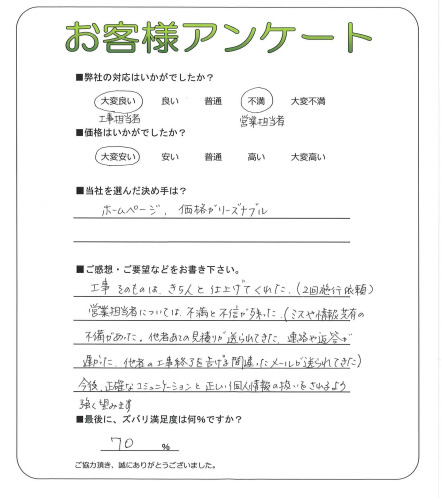 お客様アンケート
■弊社の対応はいかがでしたか？
大変良い 良い 普通 不満 大変不満
工事担当者 営業担当者
■価格はいかがでしたか？
大変安い 安い 普通 高い 大変高い
■当社を選んだ決め手は？
ホームページ, 価格がリーズナブル
■ご感想・ご要望などをお書き下さい。
工事そのものは、きちんと仕上げてくれた。(2回施行依頼)
営業担当者については、不満と不信が残った。(ミスや情報共有の
不備があった。他者あての見積りが送られてきた、連絡や返答が
遅かった、他者の工事終了を告げる間違ったメールが送られてきた)
今後、正確なコミュニケーションと正しい個人情報の扱いをされるよう
強く望みます
■最後に、ズバリ満足度は何%ですか？
70 %
ご協力頂き、誠にありがとうございました。